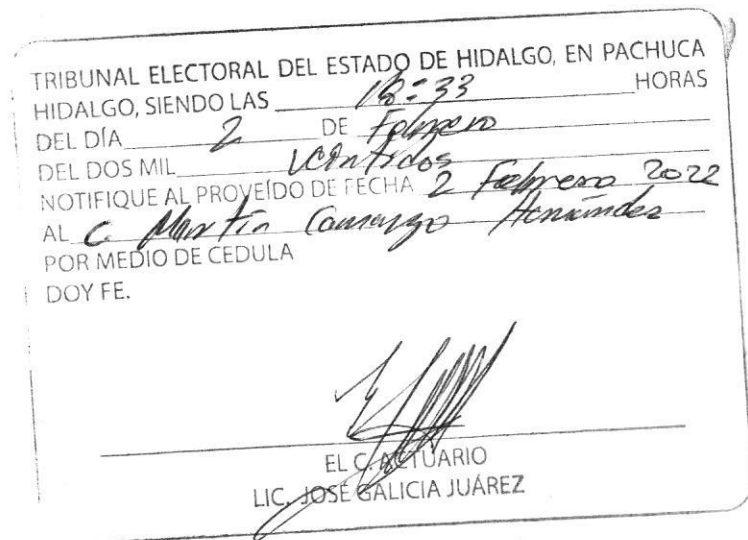 TRIBUNAL ELECTORAL DEL ESTADO DE HIDALGO, EN PACHUCA
HIDALGO, SIENDO LAS 18:33 HORAS
DEL DÍA 2 DE Febrero
DEL DOS MIL veintidos
NOTIFIQUE AL PROVEÍDO DE FECHA 2 Febrero 2022
AL C. Martín Camargo Hernández
POR MEDIO DE CEDULA
DOY FE.
EL C. ACTUARIO
LIC. JOSÉ GALICIA JUÁREZ